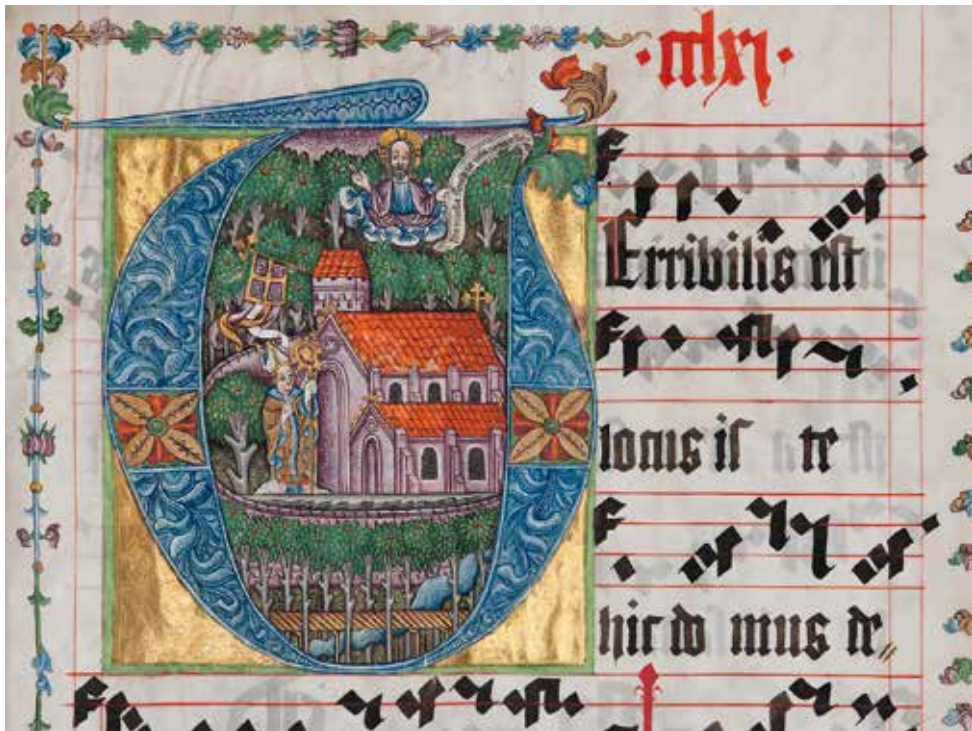 TErribilis est
locus iſ te
hic do mus de